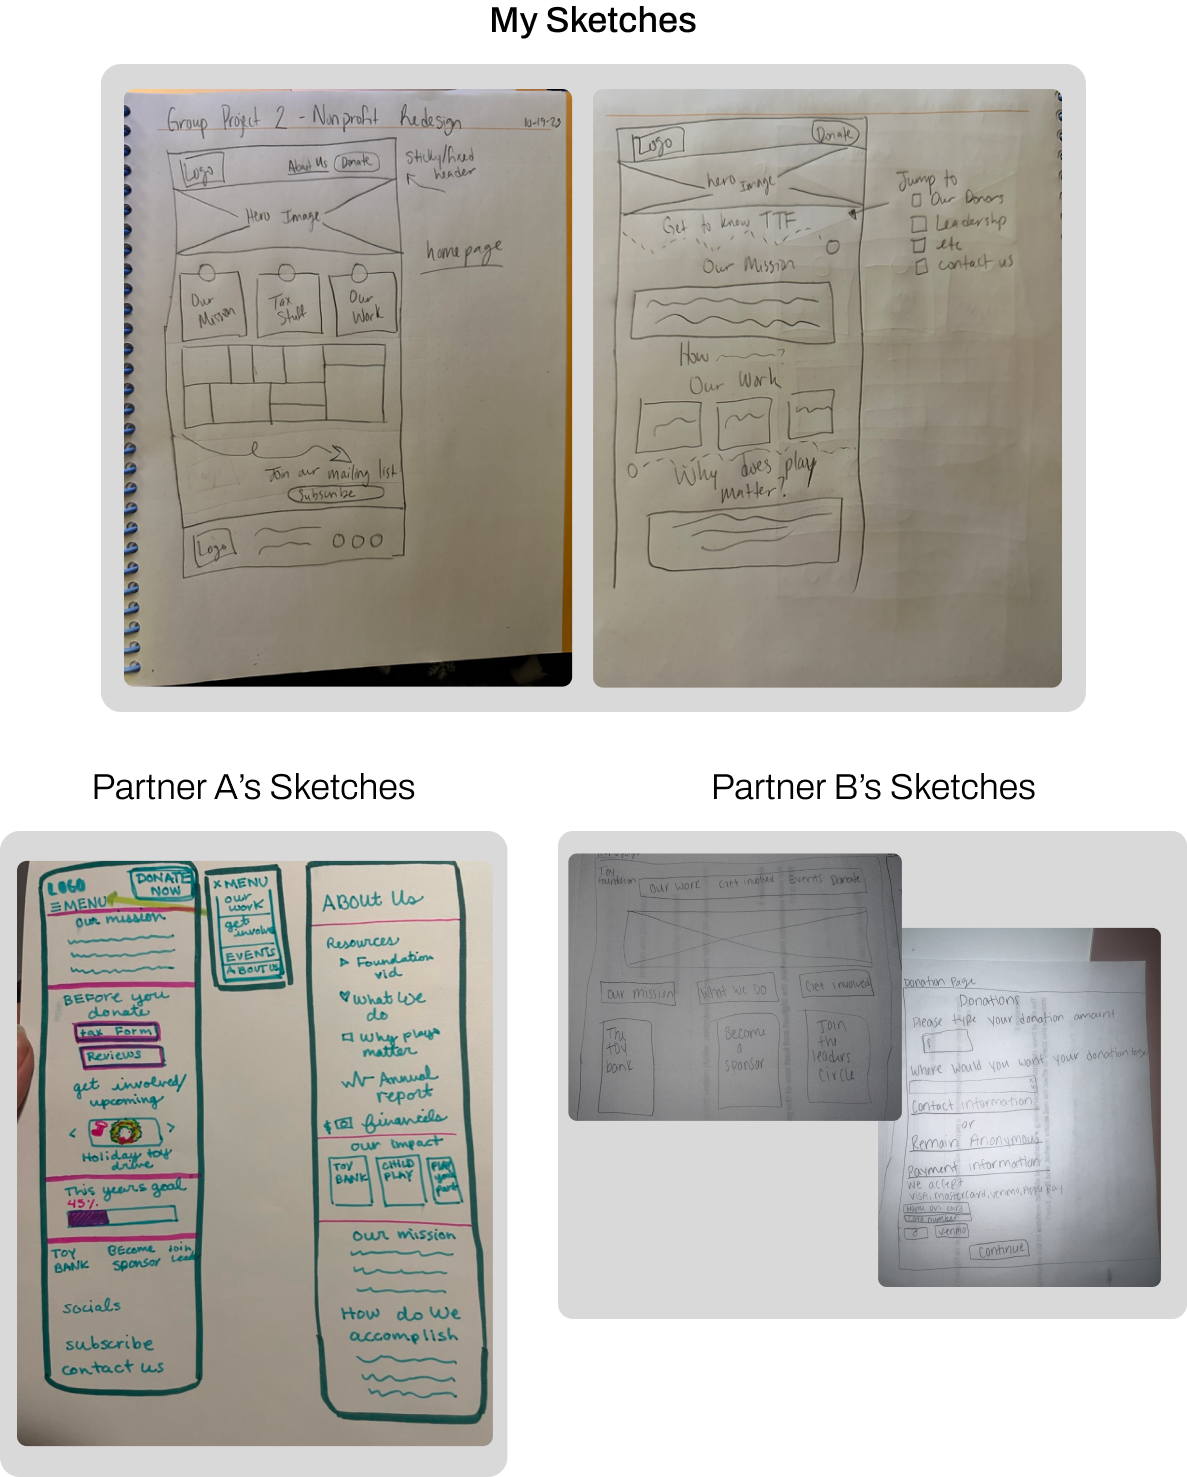 My Sketches
Group Project 2 - Nonprofit Redesign
10-19-23
Logo
About Us
Donate
Sticky/fixed
header
Hero Image
homepage
Our
Mission
Tax
Stuff
Our
Work
Join our mailing list
Subscribe
Logo
Logo
Donate
hero Image
Get to know TTF
Jump to
Our Donors
Leadership
etc
contact us
Our Mission
How ?
Our Work
Why does play
matter?
Partner A's Sketches
LOGO
DONATE
NOW
MENU
our mission
BEFore you
donate
tax Form
Reviews
get involved/
upcoming
< >
Holiday toy
drive
This years goal
45%
TOY
BANK
BEcome
sponsor
Join
Lead
socials
subscribe
contact us
X MENU
our
work
get
involve
EVENTS
ABOUT US
ABout Us
Resources
Foundation
vid
what we
do
Why plays
matter
Annual
report
$ financials
our impact
TOY
BANK
CHILD
PLAY
PLAY
your
part
our mission
How do We
accomplish
Partner B's Sketches
Toy
foundation
our work
Get involved
Events
Donate
our mission
What we Do
Get involved
The
toy
bank
Become
a
sponsor
Join
the
leaders
Circle
Donation Page
Donations
Please type your donation amount
$
Where would you want your donation to go
Contact information
or
Remain Anonymous
Payment information
We accept
visa, mastercard, venmo, Apple Pay
Name on card
Card number
venmo
Continue